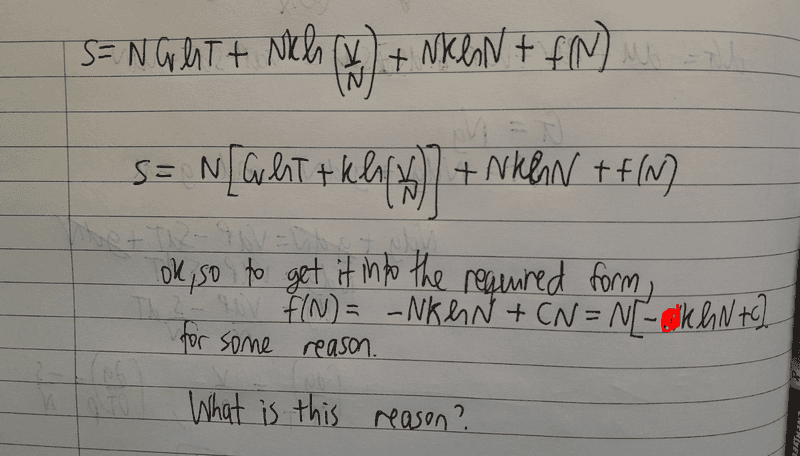 S = N Cv ln T + Nk ln (V/N) + Nk ln N + f(N)
S = N [Cv ln T + k ln (V/N)] + Nk ln N + f(N)
ok, so to get it into the required form,
f(N) = -Nk ln N + CN = N[- k ln N + C]
for some reason.
What is this reason?